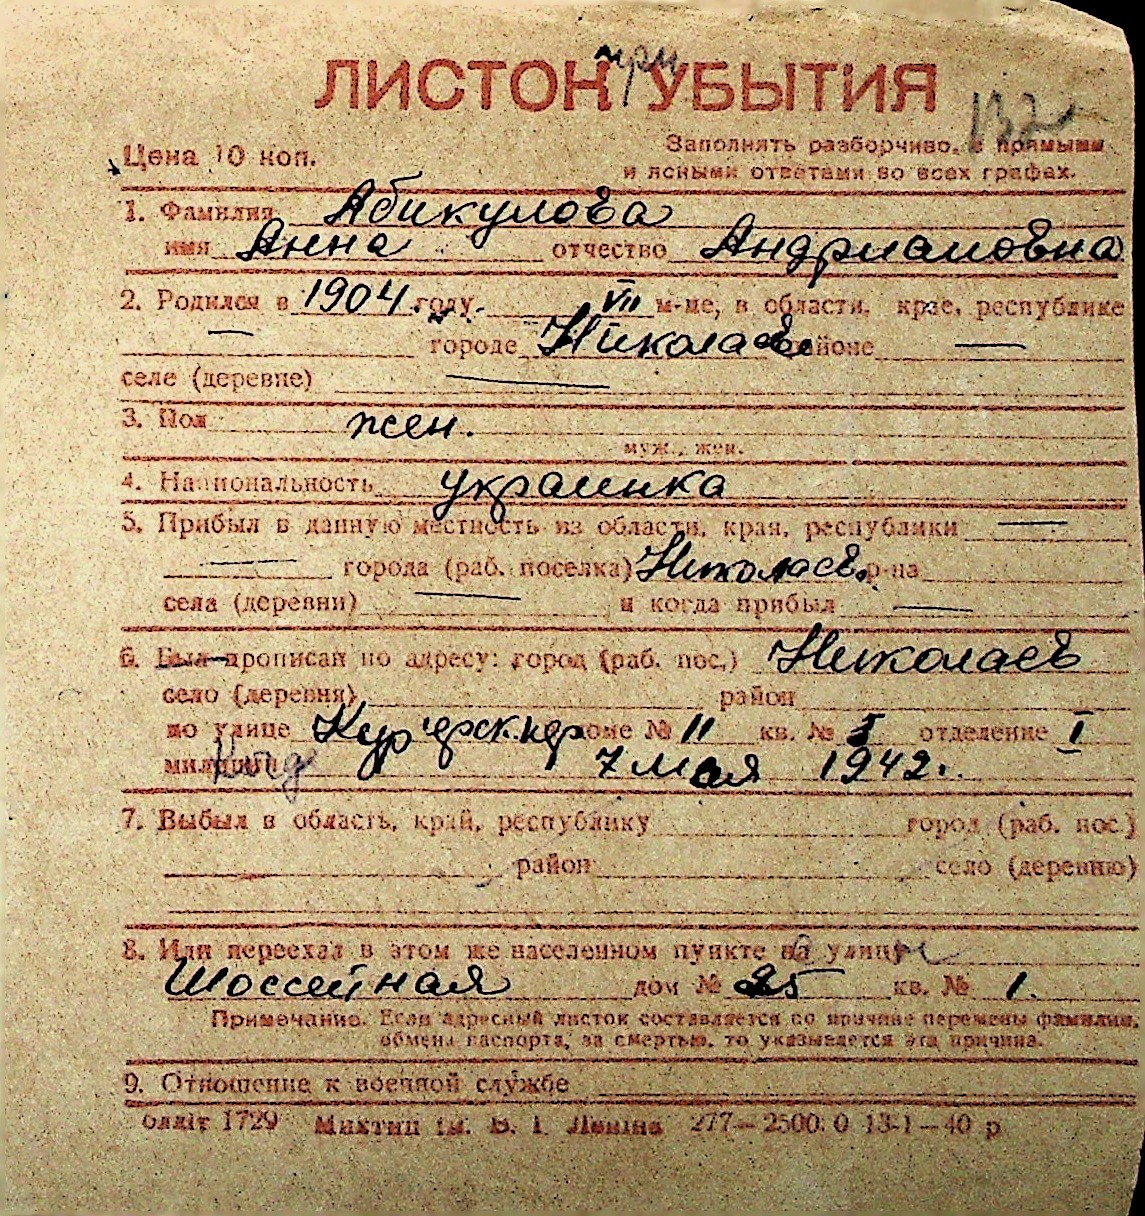 ЛИСТОК при УБЫТИЯ
132
Цена 10 коп.
Заполнять разборчиво, с прямыми
и ясными ответами во всех графах.
1. Фамилия Абикулова
имя Анна отчество Андриановна
2. Родился в 1904 году. VII м-це, в области, крае, республике
— городе Николаев районе —
селе (деревне) —
3. Пол жен.
муж., жен.
4. Национальность украинка
5. Прибыл в данную местность из области, края, республики —
— города (раб. поселка) Николаев. р-на
села (деревни) — и когда прибыл —
6. Был прописан по адресу: город (раб. пос.) Николаев
село (деревня) район
по улице доме № 11 кв. № отделение I
милиции 7 мая 1942.
7. Выбыл в область, край, республику город (раб. пос.)
район село (деревню)
8. Или переехал в этом же населенном пункте на улицу
Шоссейная дом № 25 кв. № 1.
Примечание. Если адресный листок составляется по причине перемены фамилии,
обмена паспорта, за смертью, то указывается эта причина.
9. Отношение к военной службе
1729 ім. В. І. Леніна 277—2500 0 13-1—40 р